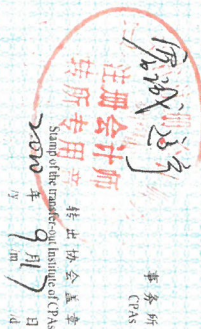 事务所
CPAs
注册会计师
转所专用章
转出协会盖章
Stamp of the transfer-out Institute of CPAs
年 9月17日
/y /m /d